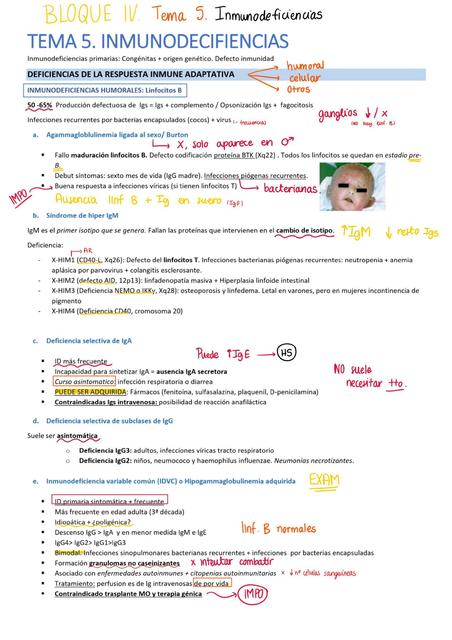 BLOQUE IV. Tema 5. Inmunodeficiencias
TEMA 5. INMUNODECIFIENCIAS
Inmunodeficiencias primarias: Congénitas + origen genético. Defecto inmunidad
humoral
DEFICIENCIAS DE LA RESPUESTA INMUNE ADAPTATIVA
celular
otros
INMUNODEFICIENCIAS HUMORALES: Linfocitos B
50 -65% Producción defectuosa de Igs = Igs + complemento / Opsonización Igs + fagocitosis
Infecciones recurrentes por bacterias encapsuladas (cocos) + virus frecuencias
ganglios ↓/x
(no hay linf. B)
a. Agammaglobulinemia ligada al sexo/ Burton
X, solo aparece en ♂
▪ Fallo maduración linfocitos B. Defecto codificación proteína BTK (Xq22) . Todos los linfocitos se quedan en estadio pre-
B.
▪ Debut síntomas: sexto mes de vida (IgG madre). Infecciones piógenas recurrentes.
▪ Buena respuesta a infecciones víricas (si tienen linfocitos T)
bacterianas.
IMPO
Ausencia linf B + Ig en suero (IgG)
b. Síndrome de hiper IgM
IgM es el primer isotipo que se genera. Fallan las proteínas que intervienen en el cambio de isotipo. ↑IgM ↓ resto Igs
Deficiencia:
AR
- X-HIM1 (CD40-L, Xq26): Defecto del linfocitos T. Infecciones bacterianas piógenas recurrentes: neutropenia + anemia
aplásica por parvovirus + colangitis esclerosante.
- X-HIM2 (defecto AID, 12p13): linfadenopatía masiva + Hiperplasia linfoide intestinal
- X-HIM3 (Deficiencia NEMO o IKKy, Xq28): osteoporosis y linfedema. Letal en varones, pero en mujeres incontinencia de
pigmento
- X-HIM4 (Deficiencia CD40, cromosoma 20)
c. Deficiencia selectiva de IgA
Puede ↑IgE → HS
▪ ID más frecuente
▪ Incapacidad para sintetizar IgA = ausencia IgA secretora
▪ Curso asintomatico: infección respiratoria o diarrea
▪ PUEDE SER ADQUIRIDA: Fármacos (fenitoína, sulfasalazina, plaquenil, D-penicilamina)
▪ Contraindicadas Igs intravenosa: posibilidad de reacción anafiláctica
NO suele
necesitar tto.
d. Deficiencia selectiva de subclases de IgG
Suele ser asintomática.
o Deficiencia IgG3: adultos, infecciones víricas tracto respiratorio
o Deficiencia IgG2: niños, neumococo y haemophilus influenzae. Neumonias necrotizantes.
e. Inmunodeficiencia variable común (IDVC) o Hipogammaglobulinemia adquirida
EXAM
▪ ID primaria sintomática + frecuente
▪ Más frecuente en edad adulta (3ª década)
▪ Idiopática + ¿poligénica?
▪ Descenso IgG > IgA y en menor medida IgM e IgE
▪ IgG4> IgG2> IgG1>IgG3
linf. B normales
▪ Bimodal. Infecciones sinopulmonares bacterianas recurrentes + infecciones por bacterias encapsuladas
▪ Formación granulomas no caseinizantes x intentar combatir
▪ Asociado con enfermedades autoinmunes + citopenias autoinmunitarias x ↓nº células sanguíneas
▪ Tratamiento: perfusion es de Ig intravenosas de por vida
▪ Contraindicado trasplante MO y terapia génica
IMPO